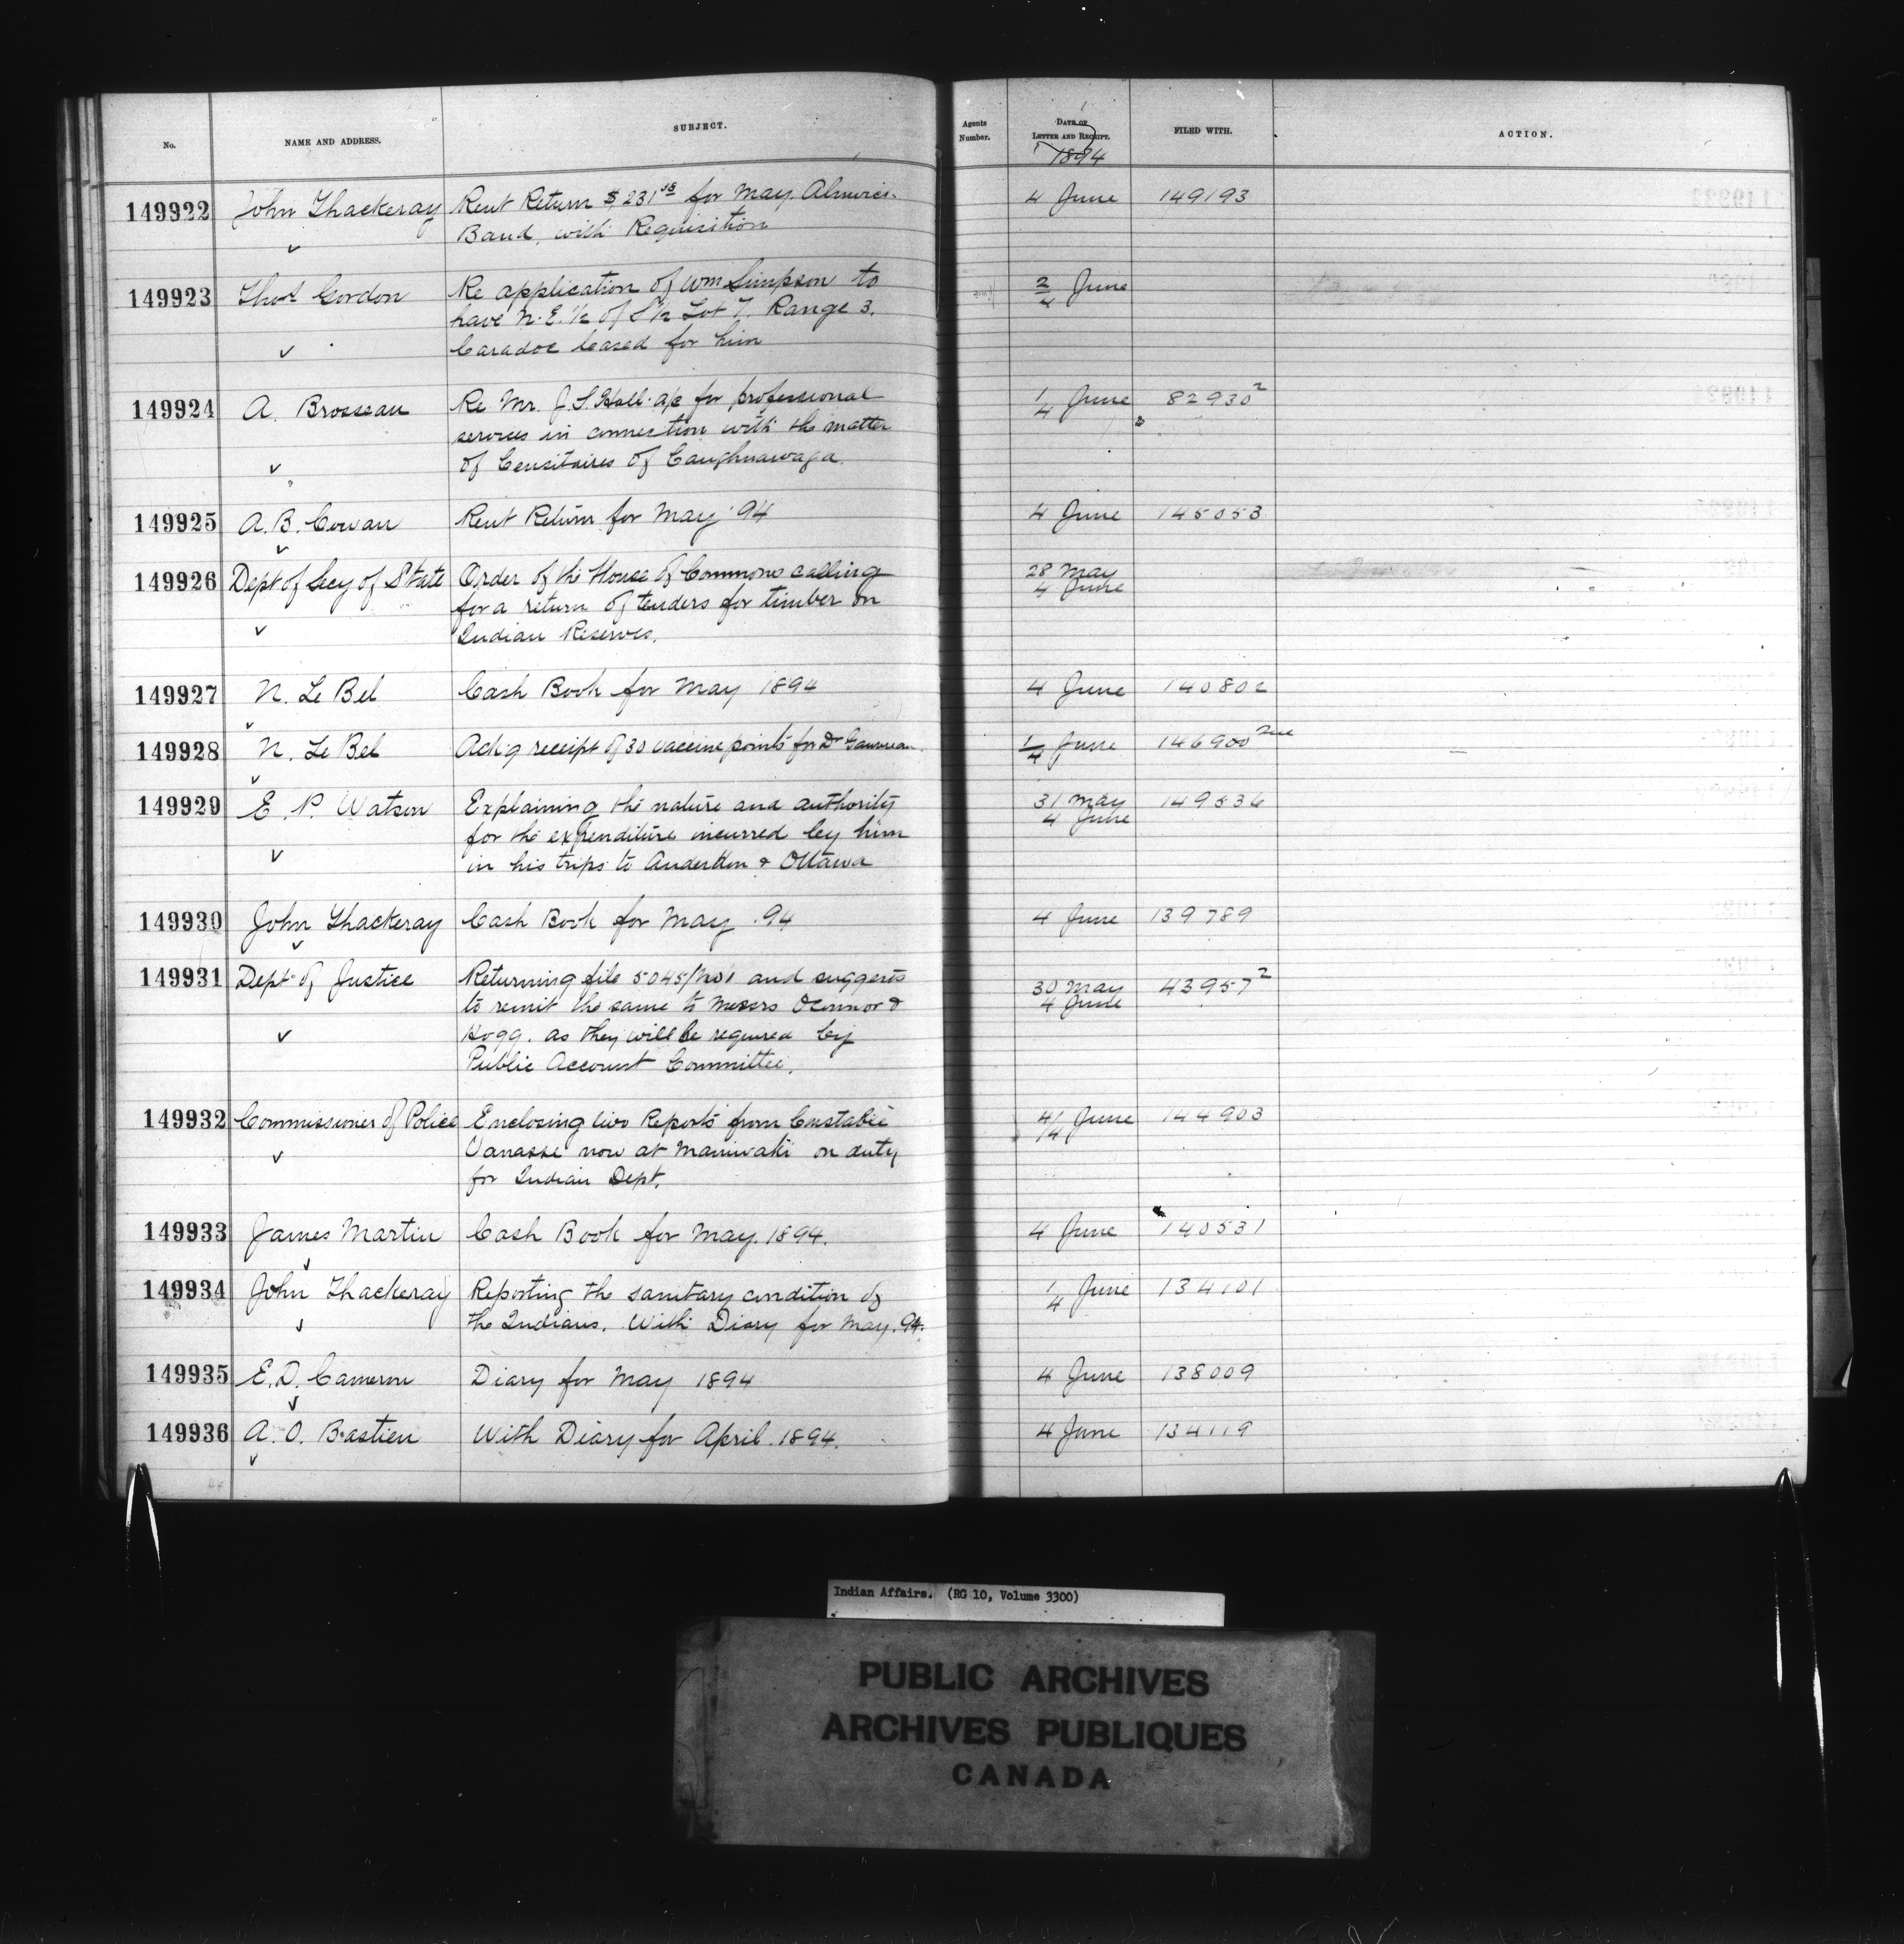 No. NAME AND ADDRESS. SUBJECT. Agents Number. DATE OF LETTER AND RECEIPT. FILED WITH. ACTION.
1894
149922 John Thackeray Rent Return $231 for May. Alnwick 4 June 149193
Band, with Requisition
149923 Thos Gordon Re application of Wm Simpson to 2/4 June
have N.E. 1/2 of S 1/2 Lot 7. Range 3.
Caradoc leased for him
149924 A. Brosseau Re Mr. J. S. Hall a/c for professional 1/4 June 82930²
services in connection with the matter
of Censitaires of Caughnawaga.
149925 A. B. Cowan Rent Return for May '94 4 June 145053
149926 Dept of Secy of State Order of the House of Commons calling 28 May
for a return of tenders for timber on 4 June
Indian Reserves.
149927 N. Le Bel Cash Book for May 1894 4 June 140802
149928 N. Le Bel Ack'g receipt of 30 vaccine points for Dr 1/4 June 146900
149929 E. P. Watson Explaining the nature and authority 31 May 149536
for the expenditure incurred by him 4 June
in his trips to Anderdon & Ottawa
149930 John Thackeray Cash Book for May .94 4 June 139789
149931 Dept of Justice Returning file 5045/ and suggests 30 May 43957²
to remit the same to Messrs OConnor & 4 June
Hogg. as they will be required by
Public Account Committee.
149932 Commissioner of Police Enclosing two Reports from Constable 4/4 June 144903
Vanasse now at Maniwaki on duty
for Indian Dept.
149933 James Martin Cash Book for May. 1894. 4 June 140531
149934 John Thackeray Reporting the sanitary condition of 1/4 June 134101
the Indians. With Diary for May. 94.
149935 E. D. Cameron Diary for May 1894 4 June 138009
149936 A. O. Bastien With Diary for April. 1894. 4 June 134119
Indian Affairs. (RG 10, Volume 3300)
PUBLIC ARCHIVES
ARCHIVES PUBLIQUES
CANADA